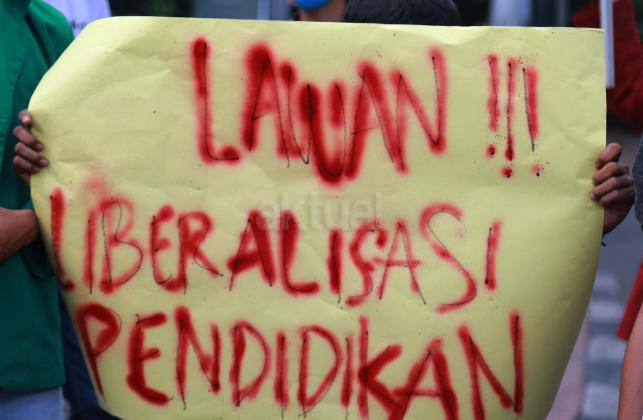 LAWAN !!!
aktual
LIBERALISASI
PENDIDIKAN